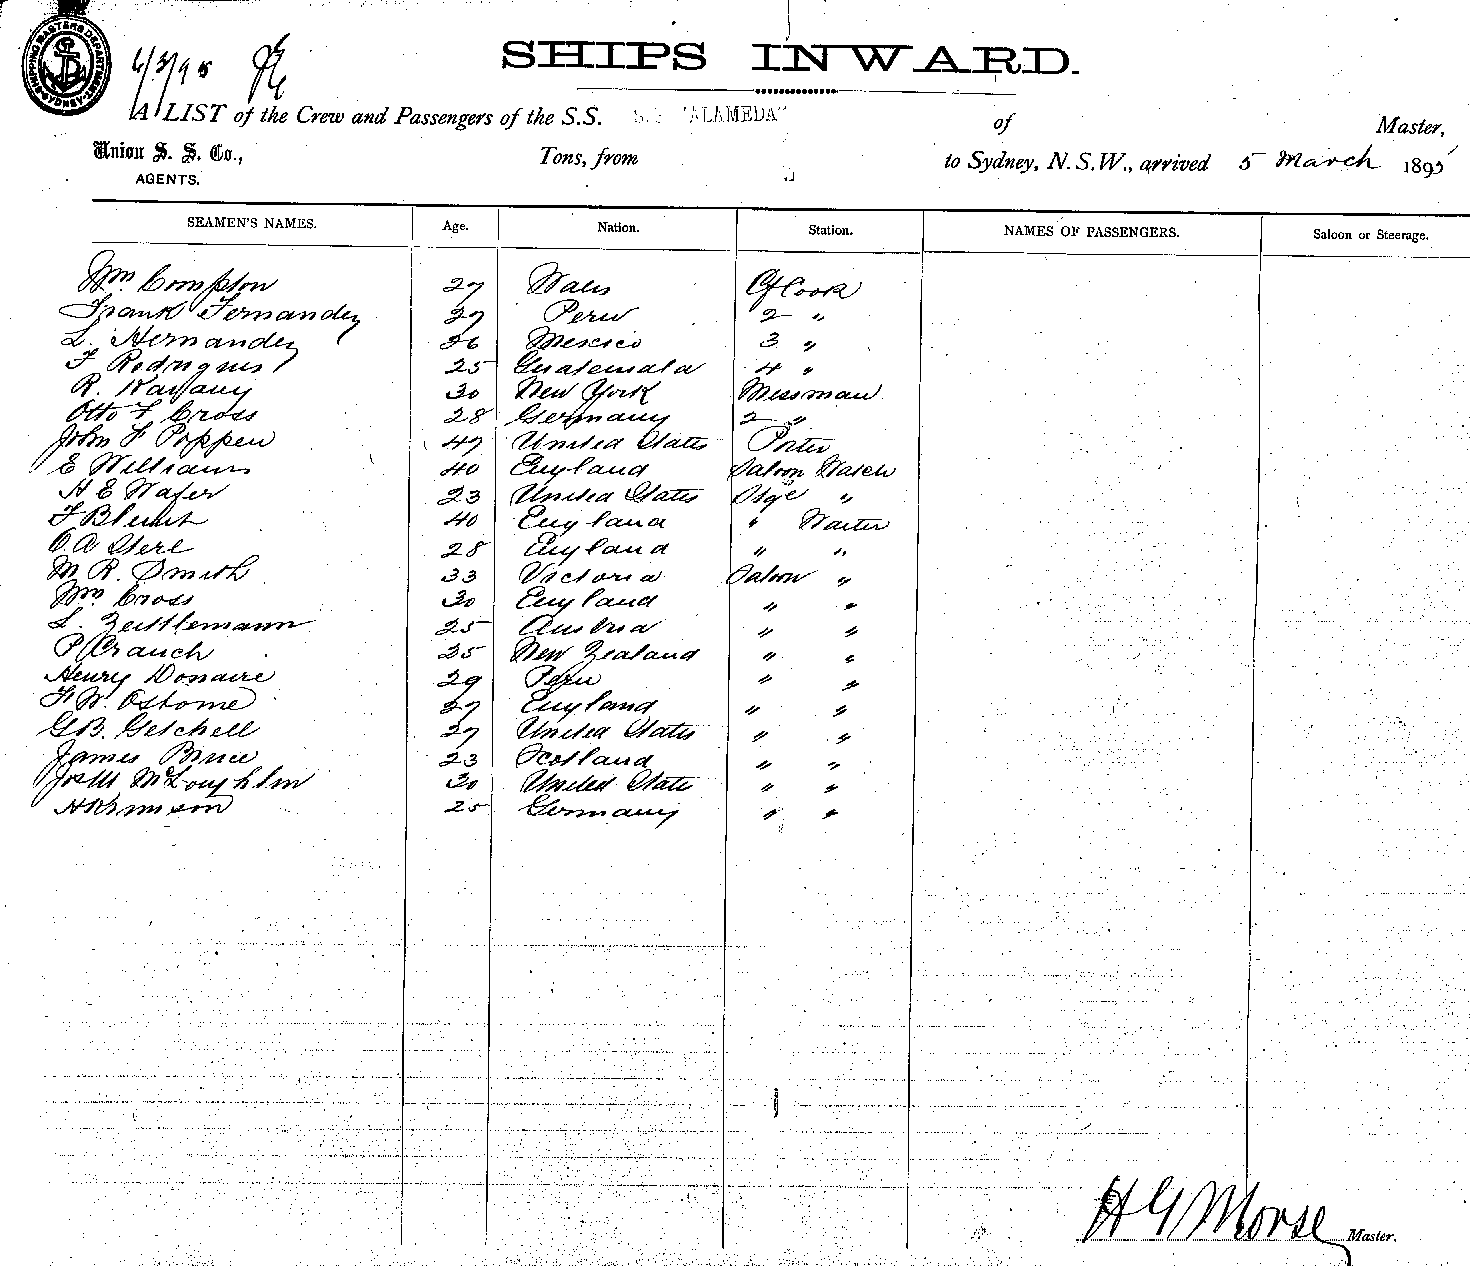 SHIPPING MASTERS DEPARTMENT SYDNEY
6/3/95
SHIPS INWARD.
A LIST of the Crew and Passengers of the S.S. S.S. "ALAMEDA" of Master,
Union S. S. Co., Tons, from to Sydney, N.S.W., arrived 5 March 1895
AGENTS.
SEAMEN'S NAMES. Age. Nation. Station. NAMES OF PASSENGERS. Saloon or Steerage.
Wm Compton 27 Wales Cf Cook
Frank Fernandez 27 Peru 2 "
L. Hernandez 26 Mexico 3 "
F Rodrigues 25 Guatemala 4 "
R. 30 New York Messman
Otto F Cross 28 Germany 2 "
John F Poppen 47 United States Porter
E Williams 40 England Saloon Watch
H E Wafer 23 United States Stge "
F Blunt 40 England " Waiter
O.A Sterl 28 England " "
M R. Smith 33 Victoria Saloon "
Wm Cross 30 England " "
L. Zeittlemann 25 Austria " "
P Crauch 25 New Zealand " "
Henry Donaire 29 Peru " "
F W. Osborne 27 England " "
G B. Getchell 27 United States " "
James Bruce 23 Scotland " "
Jos W McLoughlin 30 United State " "
25 Germany " "
H G Morse Master.